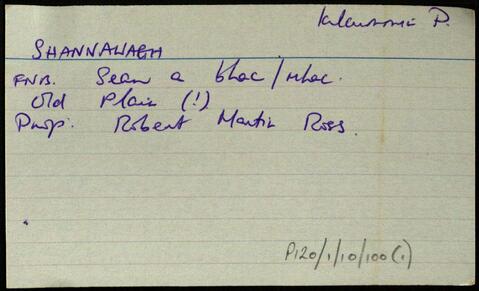 Kilcummin P.
SHANNAWAGH
FNB. Sean a bhac / mhac.
Old Plain (!)
Prop: Robert Martin Ross
P120/1/10/100(1)